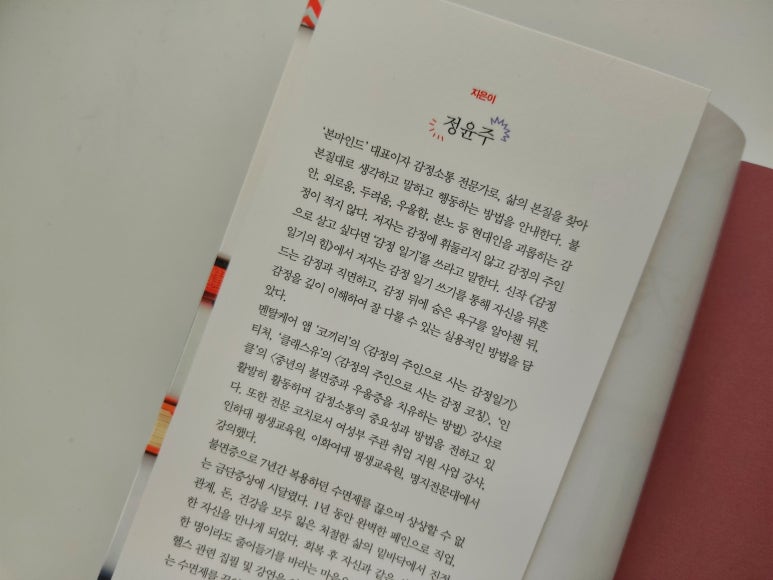 지은이
정윤주
'본마인드' 대표이자 감정소통 전문가로, 삶의 본질을 찾아
본질대로 생각하고 말하고 행동하는 방법을 안내한다. 불
안, 외로움, 두려움, 우울함, 분노 등 현대인을 괴롭히는 감
정이 적지 않다. 저자는 감정에 휘둘리지 않고 감정의 주인
으로 살고 싶다면 '감정 일기'를 쓰라고 말한다. 신작 《감정
일기의 힘》에서 저자는 감정 일기 쓰기를 통해 자신을 뒤흔
드는 감정과 직면하고, 감정 뒤에 숨은 욕구를 알아챈 뒤,
감정을 깊이 이해하여 잘 다룰 수 있는 실용적인 방법을 담
았다.
멘탈케어 앱 '코끼리'의 〈감정의 주인으로 사는 감정일기〉
티처, '클래스유'의 〈감정의 주인으로 사는 감정 코칭〉, '인
클'의 〈중년의 불면증과 우울증을 치유하는 방법〉 강사로
활발히 활동하며 감정소통의 중요성과 방법을 전하고 있
다. 또한 전문 코치로서 여성부 주관 취업 지원 사업 강사,
인하대 평생교육원, 이화여대 평생교육원, 명지전문대에서
강의했다.
불면증으로 7년간 복용하던 수면제를 끊으며 상상할 수 없
는 금단증상에 시달렸다. 1년 동안 완벽한 폐인으로 직업,
관계, 돈, 건강을 모두 잃은 처절한 삶의 밑바닥에서 진정
한 자신을 만나게 되었다. 회복 후 자신과 같은
한 명이라도 줄어들기를 바라는 마음으
헬스 관련 집필 및 강연을
는 수면제를